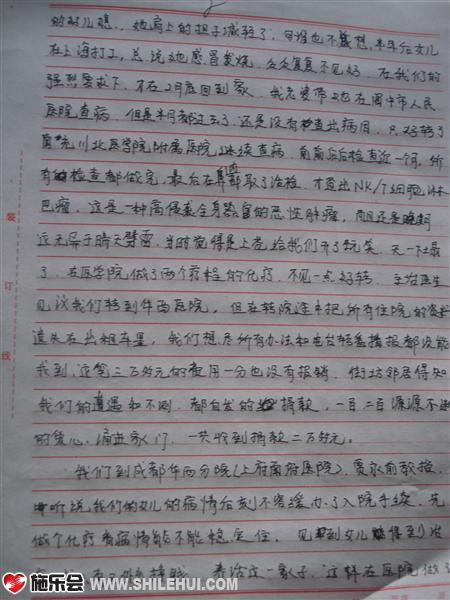 2
的好儿媳. 她肩上的担子减轻了, 可谁也不料想, 半年后女儿
在上海打工, 总说她感冒发烧, 反反复复不见好. 在我们的
强烈要求下, 才在2月底回到家. 我老婆带她在阆中市人民
医院查病. 但是半月都过去了, 还是没有检查出病因. 只好转了
南充川北医学院附属医院继续查病. 前前后后检查近一个月, 所
有的检查都做完, 最后在鼻内部取了活检, 才查出NK/T细胞淋
巴瘤. 这是一种高侵袭全身器官的恶性肿瘤, 而且还是晚期
这无异于晴天霹雳, 当时觉得是上苍给我们开了玩笑. 天一下塌
了. 在医学院做了两个疗程的化疗, 不见一点好转. 主治医生
见议我们转到华西医院, 但在转院途中把所有住院的资料
遗失在出租车里, 我们想尽所有办法和电台转查播报都没能
找到, 这笔三万多元的费用一分也没有报销. 街坊邻居得知
我们的遭遇和不测. 都自发的捐款, 一百二百源源不断
的爱心, 涌进家门. 一共收到捐款二万多元.
我们到成都华西分院(上府南府医院), 贾永前教授
听说我们的女儿的病情后刻不容缓办了入院手续. 先
做个化疗看病情能不能稳定住. 见到女儿
养活这一家子. 这样在医院做了
装
订
线
施乐会
WWW.SHILEHUI.COM